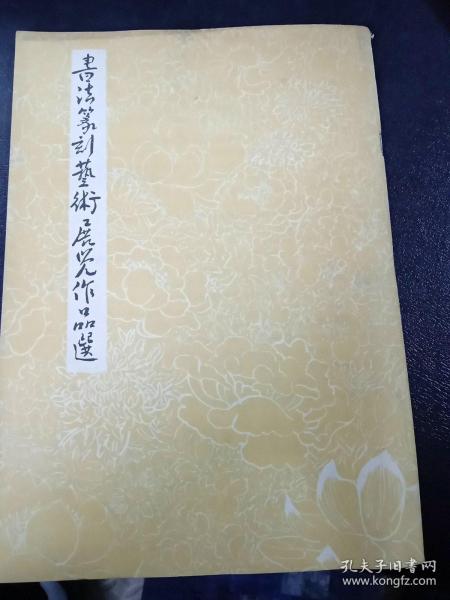 書法篆刻藝術展览作品選
孔夫子旧书网
www.kongfz.com